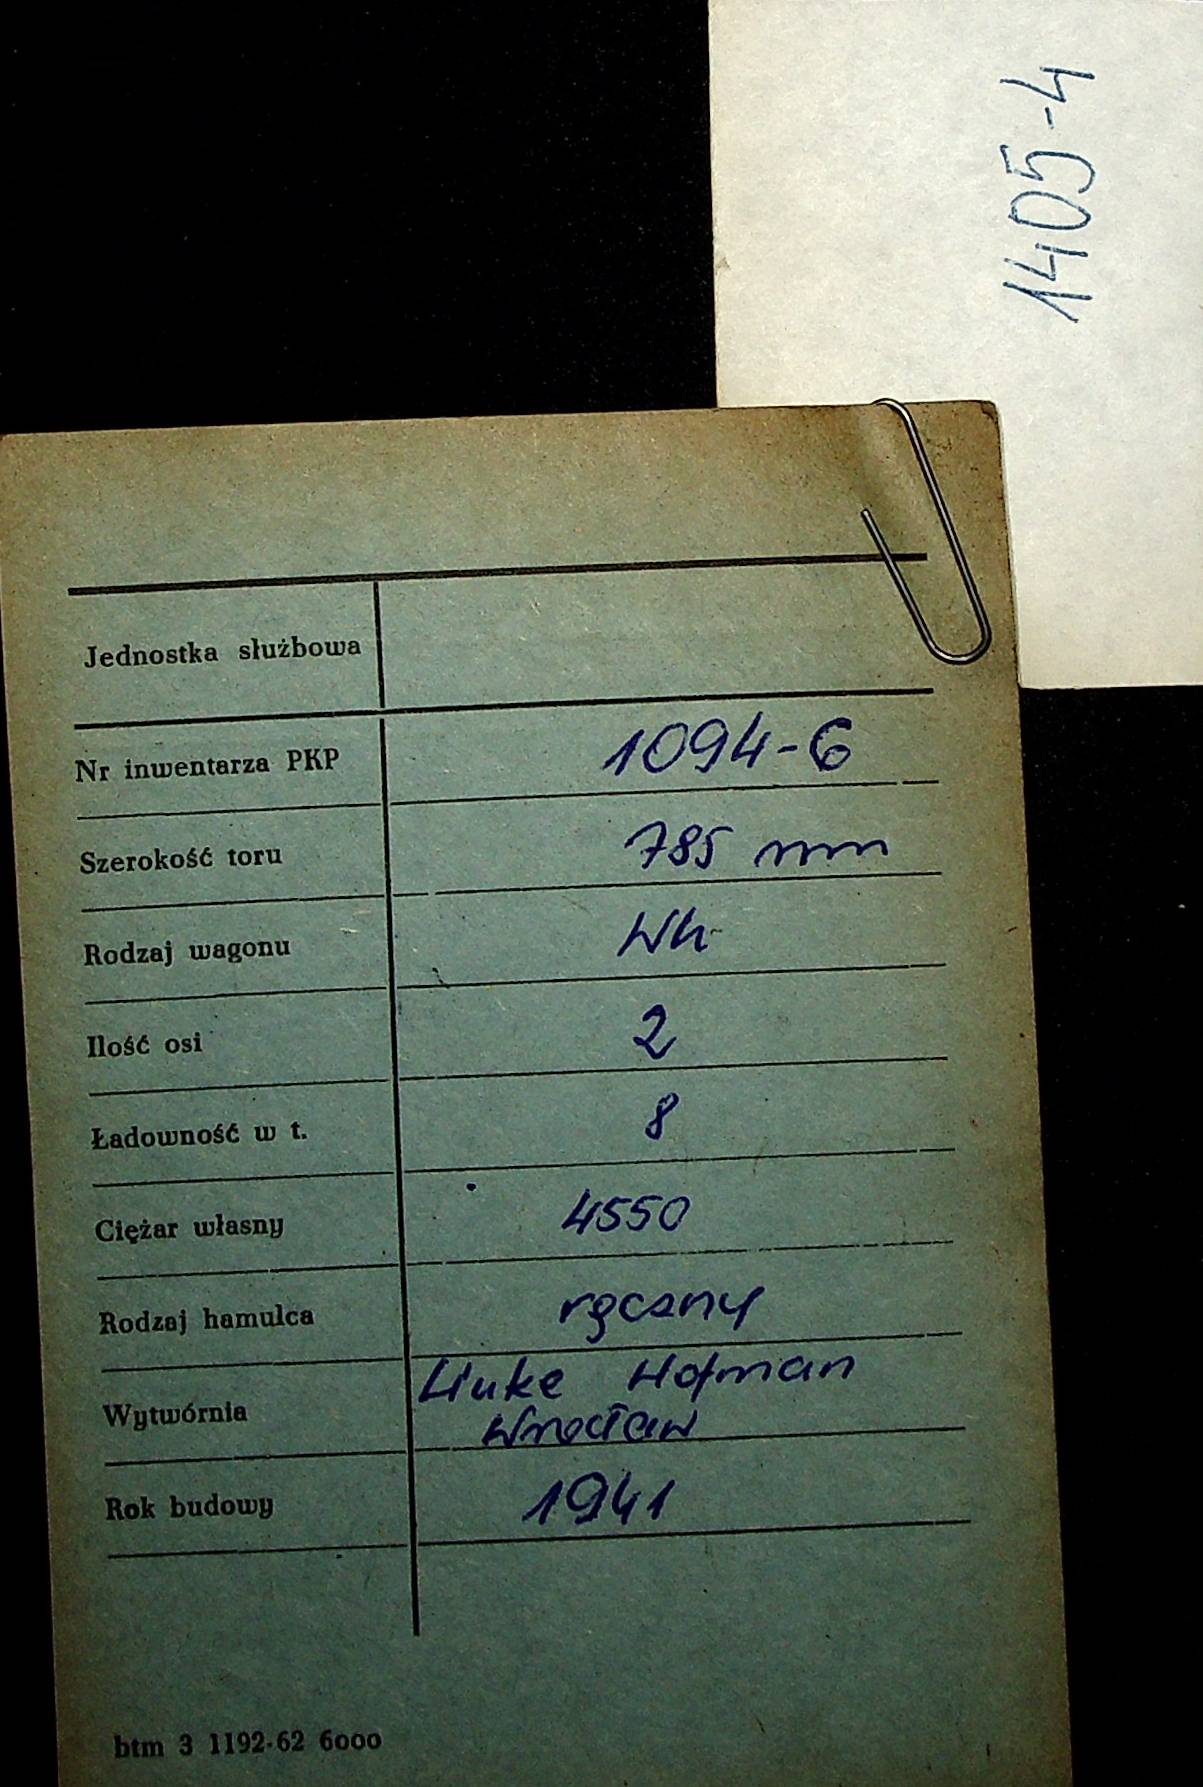 1405-4
Jednostka służbowa
Nr inwentarza PKP 1094-6
Szerokość toru 785 mm
Rodzaj wagonu Wh
Ilość osi 2
Ładowność w t. 8
Ciężar własny 4550
Rodzaj hamulca ręczny
Wytwórnia Linke Hofman
Wrocław
Rok budowy 1941
btm 3 1192-62 6000